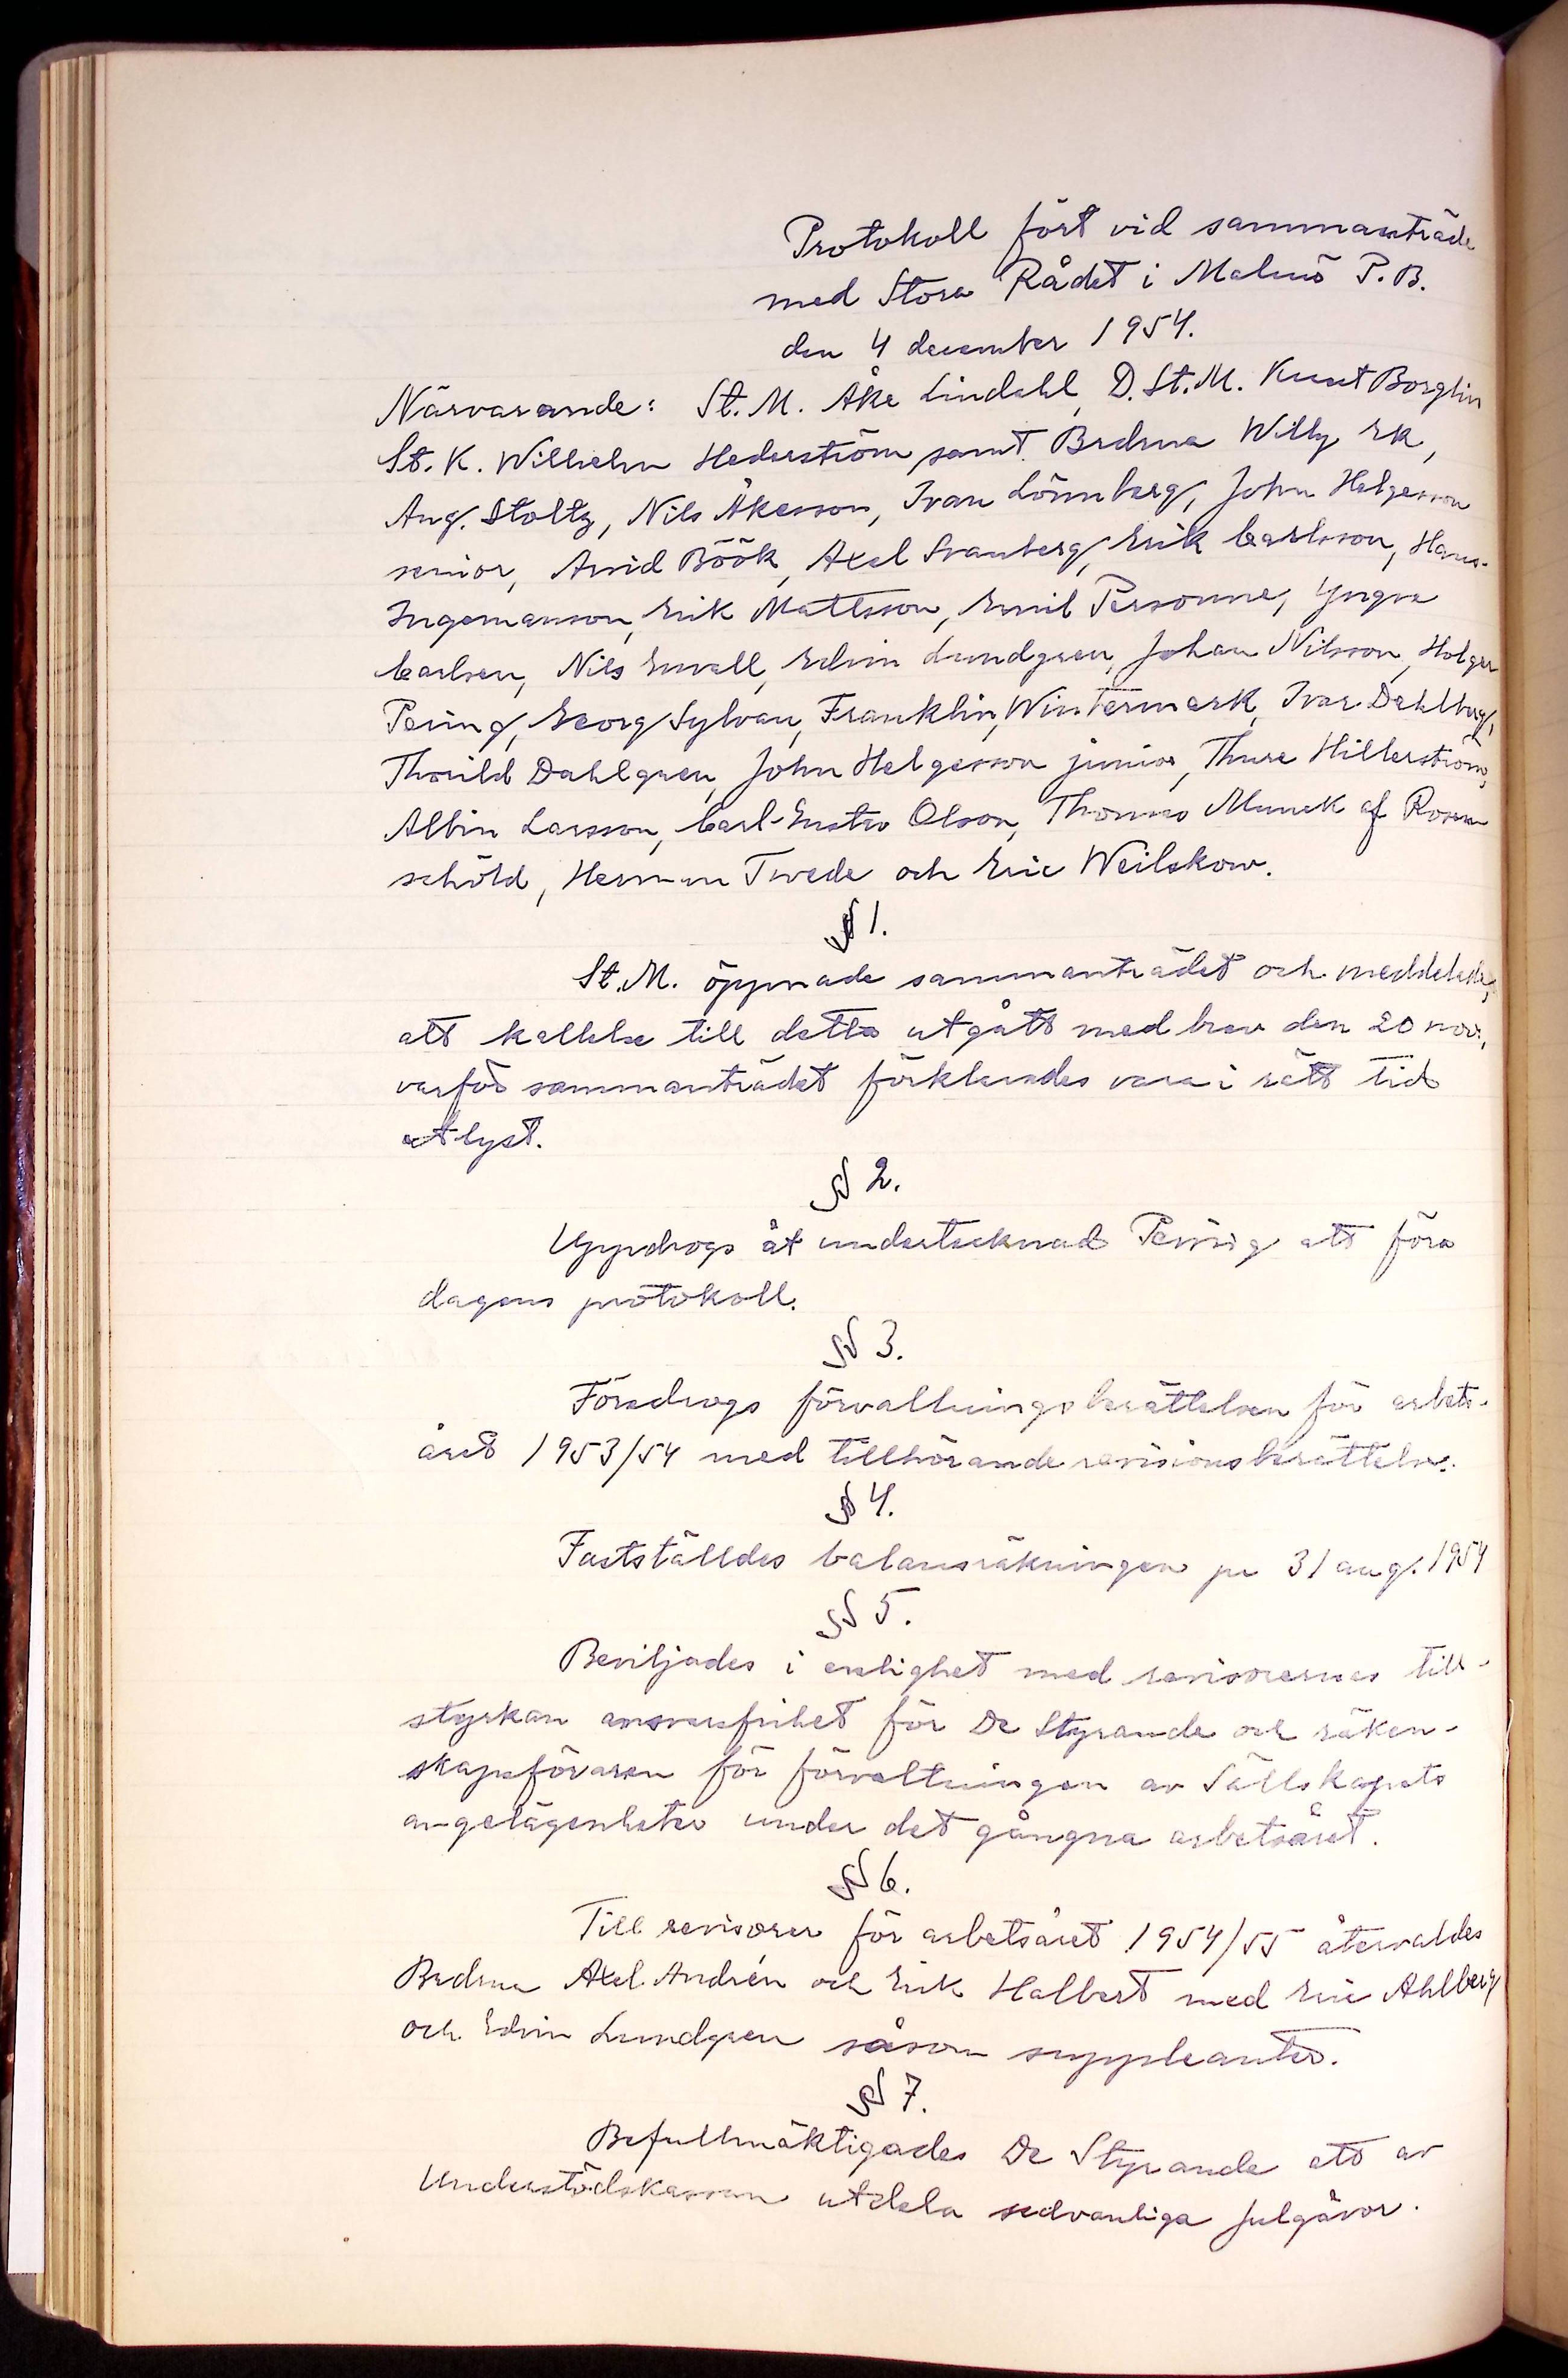 Protokoll fört vid sammanträde
med Stora Rådet i Malmö P.B.
den 4 december 1954.
Närvarande: St. M. Åke Lindahl, D. St. M. Knut Borglin
St. K. Wilhelm Hederström samt Bröderna Willy Ek,
Aug. Stoltz, Nils Åkesson, Ivan Lönnberg, John Helgesson
senior, Arvid Böök, Axel Svanberg, Erik Carlsson, Hans
Ingemanson, Erik Mattsson, Emil Personne, Yngve
Carlsen, Nils Envall, Edvin Lundgren, Johan Nilsson, Holger
Pering, Georg Sylvan, Franklin Wintermark, Ivar Dahlberg,
Thorild Dahlgren, John Helgesson junior, Thure Hillerström,
Albin Larsson, Carl-Gustav Olson, Thomas Munck af Rosen-
schöld, Herman Twede och Eric Weilskow.
§ 1.
St. M. öppnade sammanträdet och meddelade,
att kallelse till detta utgått med brev den 20 nov.,
varför sammanträdet förklarades vara i rätt tid
utlyst.
§ 2.
Uppdrogs åt undertecknad Pering att föra
dagens protokoll.
§ 3.
Föredrogs förvaltningsberättelsen för arbets-
året 1953/54 med tillhörande revisionsberättelse.
§ 4.
Fastställdes balansräkningen per 31 aug. 1954
§ 5.
Beviljades i enlighet med revisorernas till-
styrkan ansvarsfrihet för De Styrande och räken-
skapsföraren för förvaltningen av Sällskapets
angelägenheter under det gångna arbetsåret.
§ 6.
Till revisorer för arbetsåret 1954/55 återvaldes
Bröderna Axel Andrén och Erik Halbert med Eric Ahlberg
och Edvin Lundgren såsom suppleanter.
§ 7.
Befullmäktigades De Styrande att av
Understödskassan utdela sedvanliga julgåvor.